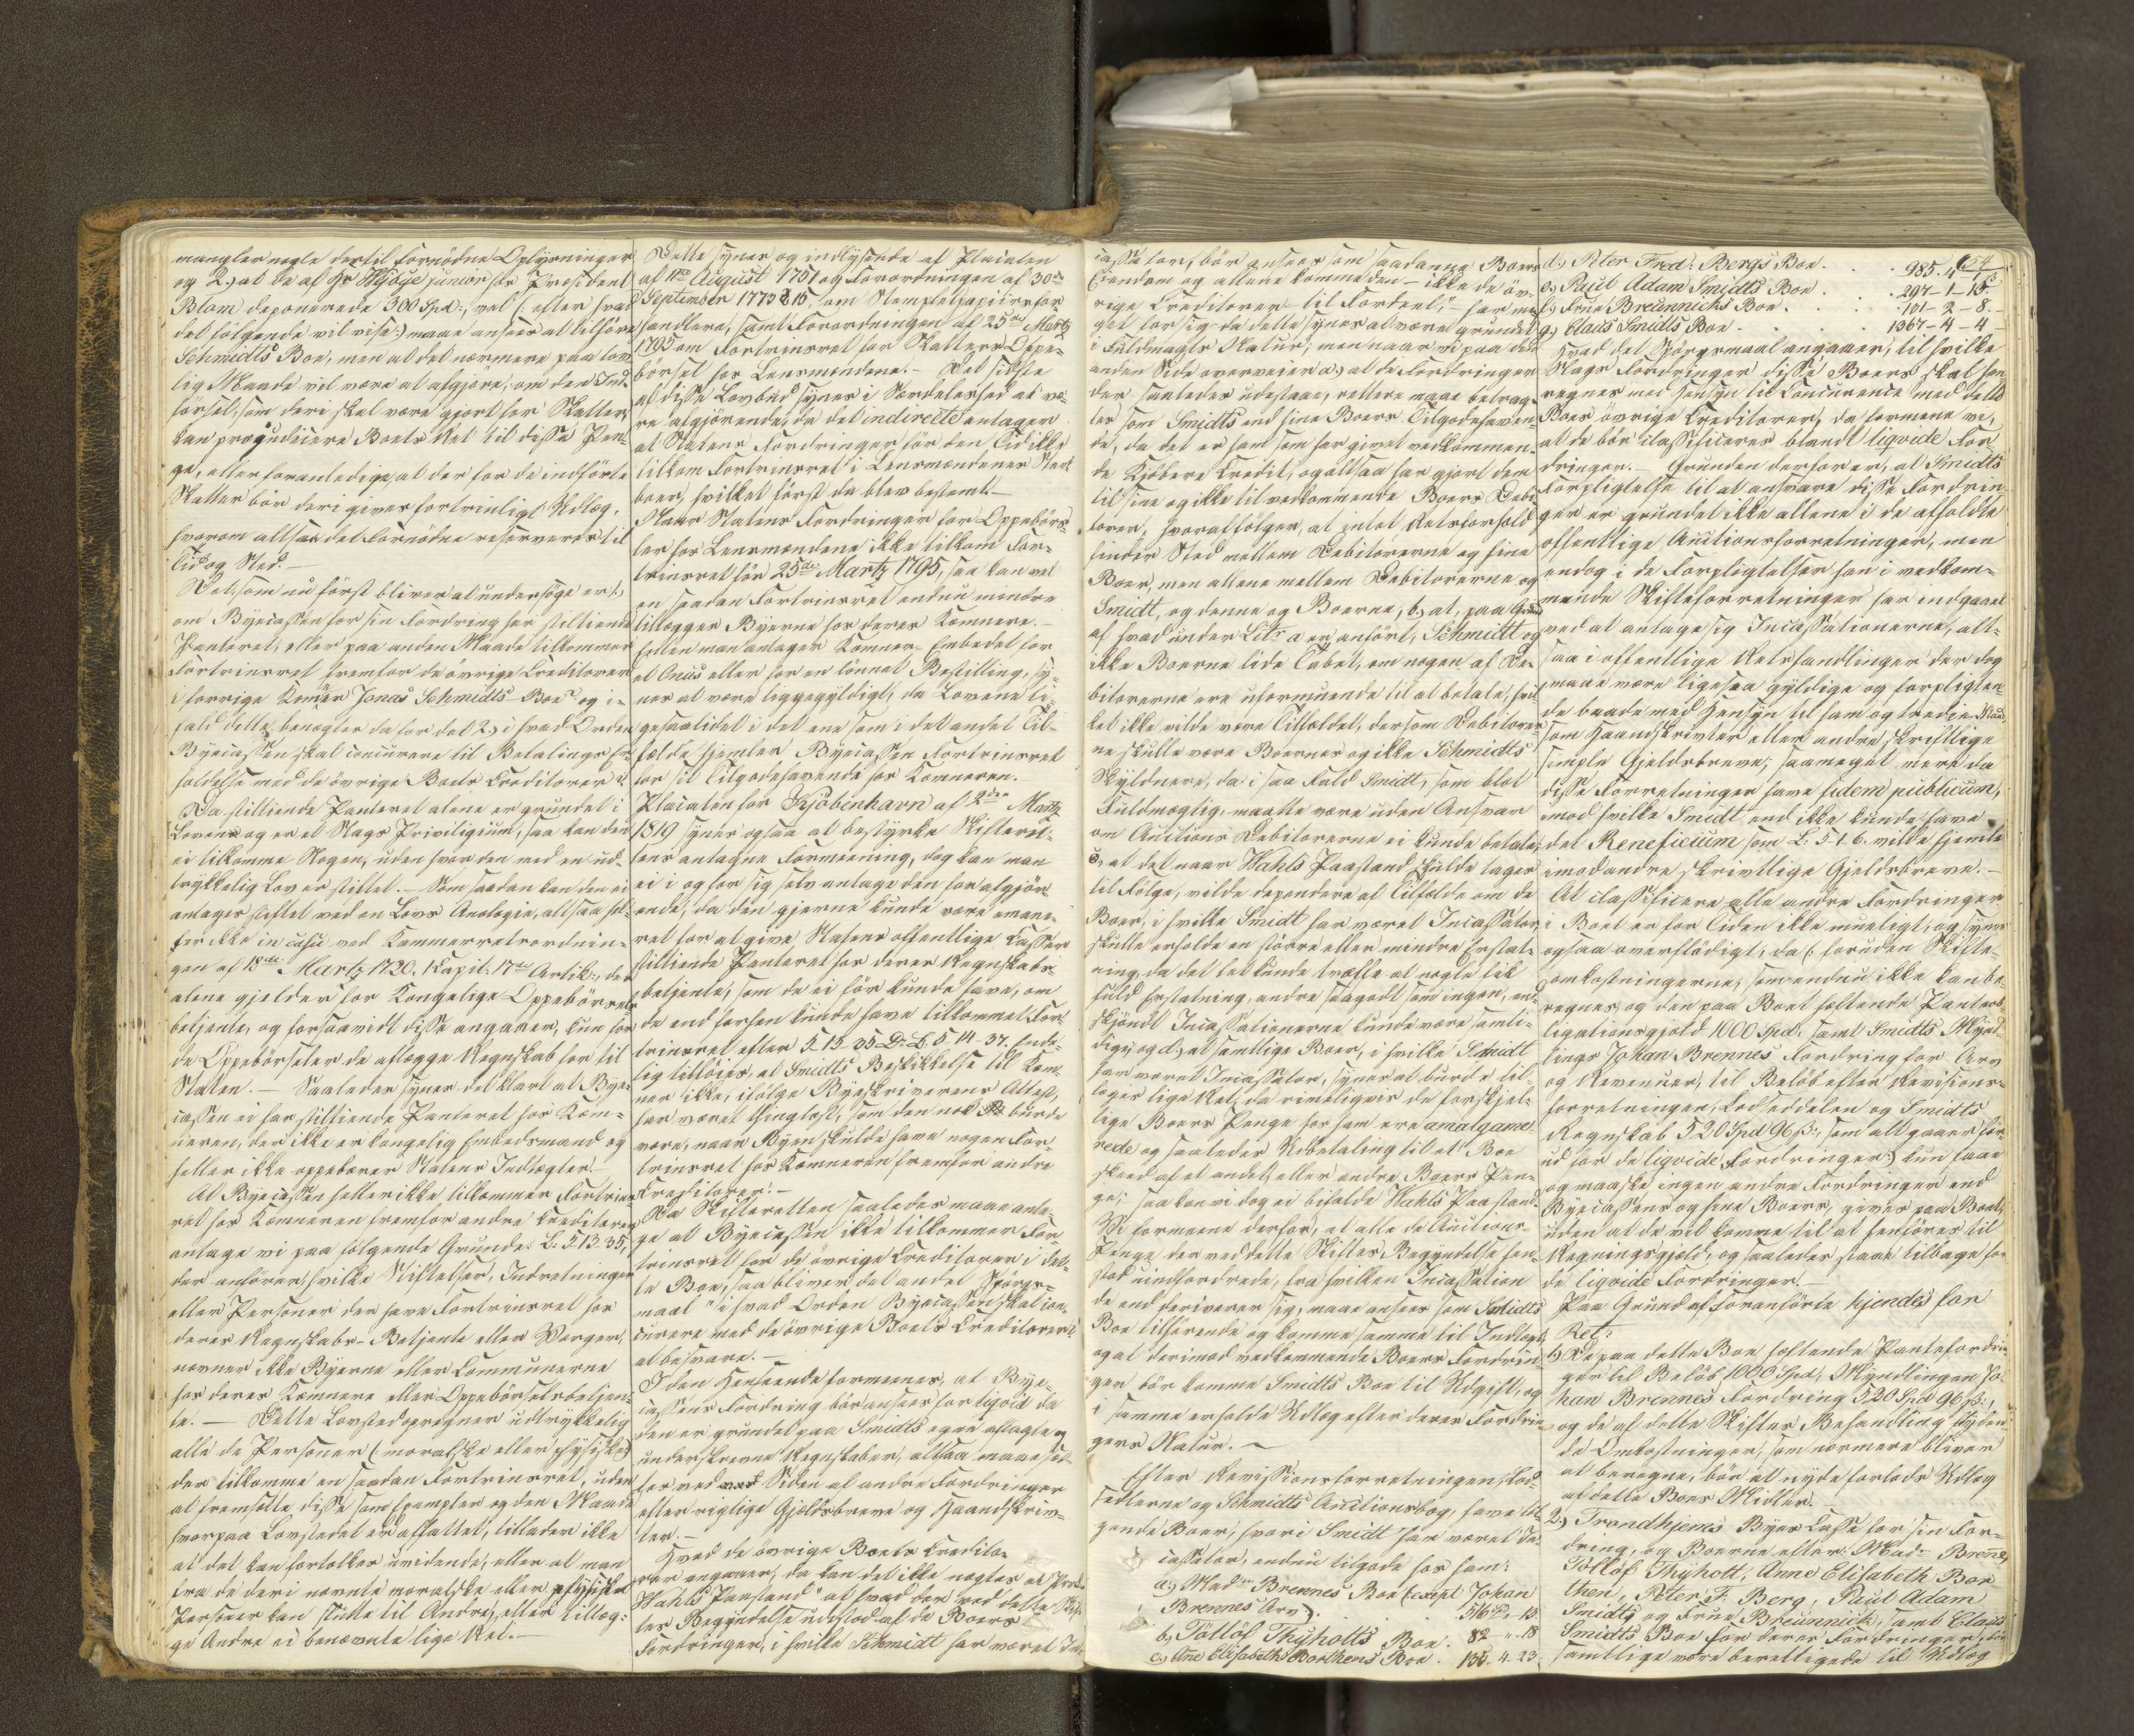 mangler nogle dertil fornödne Oplysninger
og 2, at de af Hr Høÿe junior for President
Blom deponerede 300 Spd:, vel (: efter hvad
det fölgende vil vise:) maae ansees at tilhöre
Schmidts Boe, men at det nærmere paa lov-
lig Maade vil være at afgjöre, om den Ind-
försel, som deri skal være gjort for Skatter
kan præjudicere Boets Ret til disse Pen-
ge, eller foranledige, at der for de indförte
Skatter bör deri gives fortrinligt Udlæg,
hvorom altsaa det Fornödne reserveres til
Tid og Sted.
Det, som nu først bliver at undersöge er 1,
om Byecassen for sin Fordring har stiltiende
Panteret, eller paa anden Maade tilkommer
Fortrinsret fremfor de övrige Creditorer
i forrige Kæmner Jonas Schmidts Boe og i-
fald dette benægtes da for det 2, i hvad Orden
Byecassen skal concurere til Betalings Er-
holdelse med de övrige Boets Creditorer?
Da stiltiende Panteret alene er grundet i
Loven og er et Slags Priviligium, saa kan den
ei tilkomme Nogen, uden hvor den ved en ud-
trykkelig Lov er hiemlet. Som saadan kan den ei
antages stiftet ved en Lovs Analogie, altsaa hel-
ler ikke in casu ved Kammerretsordnin-
gen af 18de Martz 1720. 1 Capit: 17de Artik:, der
alene gjelder for Kongelige Oppebörsels-
betjente, og forsaavidt disse angaaer, kun for
de Oppebörseler de aflægge Regnskab for til
Staten. Saaledes synes det klart at Bye-
cassen ei har stiltiende Panteret hos Kæm-
neren, der ikke er kongelig Embedsmand og
heller ikke oppebærer Statens Indtægter.
At Byecassen heller ikke tilkommer Fortrins-
ret hos Kæmneren fremfor andre Creditorer
antage vi paa fölgende Grunde: L: 5-13-35,
der anförer, hvilke Stiftelser, Indretninger
eller Personer der have Fortrinsret hos
deres Regnskabs-Betjente eller Værger,
nævner ikke Byerne eller Communerne
hos deres Kæmnere eller Oppebörselsbetjen-
te. Dette Lovsted opregner udtrykkelig
alle de Personer (: moralske eller physiske:)
der tilkomme en saadan Fortrinsret, uden
at fremsætte disse som Exempler og den Maade
hvorpaa Lovstedet er affattet, tillader ikke
at det kan fortolkes udvidende, eller at man
fra de deri nævnte moralske eller physiske
Personer kan slutte til Andre, eller tillæg-
ge Andre ei benævnte lige Ret.
Dette synes og indlysende af Placaten
af 11te August 1751 og Forordningen af 30te
September 1773 § 15, om Stempletpapiirsfor-
handlere, samt Forordningen af 25de Martz
1795 om Fortrinsret for Skatters Oppe-
börsel hos Lensmændene. Det sidste
af disse Lovbud synes i Særdeleshed at væ-
re afgjörende, da det indirecte antager
at Statens Fordringer för den Tid ikke
tilkom Fortrinsret i Lensmændenes Sterv-
boer, hvilket först da blev bestemt.
Naar Statens Fordringer for Oppebörs-
ler hos Lensmændene ikke tilkom For-
trinsret för 25de Martz 1795, saa kan vel
en saadan Fortrinsret endnu mindre
tillægges Byerne hos deres Kæmnere.
Enten man antager Kæmner-Embedet for
et Onus eller for en lönnet Bestilling, sy-
nes at være ligegyldigt, da Lovene li-
gesaalidet i det ene som i det andet Til-
fælde hjemler Byecassen Fortrinsret
for sit Tilgodehavende hos Kæmneren.
Placaten for Kjöbenhavn af 2den Martz
1819 synes ogsaa at bestyrke Skifteret-
tens antagne Formeening, dog kan man
ei i og for sig selv antage den for afgjör-
ende, da den gjerne kunde være emane-
ret for at give Statens offentlige Casser
stiltiende Panteret hos deres Regnskabs-
betjente, som de ei för kunde have, om
de end forhen kunde have tilkommet For-
trinsret efter 5-13-35 D: L: 5-14-37. Ende-
lig tilföies, at Smidts Beskikkelse til Kæm-
ner ikke, ifölge Byeskriverens Attest,
har været thinglæst, som den nok burde
være, naar Byen skulde have nogen For-
trinsret hos Kæmneren fremfor andre
Creditorer.
Da Skifteretten saaledes maae anta-
ge at Byecassen ikke tilkommer For-
trinsret for de övrige Creditorer i det-
te Boe, saa bliver det andet Spörgs-
maal "i hvad Orden Byecassen skal con-
currere med de övrige Boets Creditorer"
at besvare.
I den Henseende formenes, at Bye-
cassens Fordring bör ansees for liqvid da
den er grundet paa Smidts egne aflagte og
underskrevne Regnskaber, altsaa maae sæt-
tes ved Siden af andre Fordringer
efter rigtige Gjældsbreve og Haandskriv-
ter.
Hvad de övrige Boets Credito-
rer angaaer, da kan det ikke nægtes at Proc:
Wahls Paastand "at hvad der ved dette Skif-
tes Begyndelse udestod af de Boers
Fordringer, i hvilke Schmidt har været In-
cassator, bör ansees som saadanne Boers
Eiendom og alene komme den – ikke de öv-
rige Creditorer – til Fordeel", – har me-
get for sig – da dette synes at være grundet
i Fuldmagts Natur; men naar vi paa den
anden Side overveier a, at de Fordringer
der saaledes udestaae, rettere maae betrag-
tes som Smidts end hine Boers Tilgodehaven-
de, da det er ham som har givet vedkommen-
de Kjöbere Credit, og altsaa har gjort dem
til sine og ikke til vedkommende Boers Debi-
torer, hvoraf fölger, at intet Retsforhold
finder Sted mellem Debitorerne og hine
Boer, men alene mellem Debitorerne og
Smidt, og denne og Boerne, b, at, paa Grund
af hvad under Litr a er anfört, Schmidt og
ikke Boerne lide Tabet, om nogen af De-
bitorerne ere uformuende til at betale, hvil-
ket ikke vilde være Tilfældet, dersom Debitorer-
ne skulle være Boernes og ikke Schmidts
Skyldnere, da i saa Fald Smidt, som blot
Fuldmægtig, maatte være uden Ansvar
om Auctions Debitorerne ei kunde betale,
c, at det naar Wahls Paastand skulde tages
til Fölge, vilde dependere af Tilfælde om de
Boer, i hvilke Smidt har været Incassator
skulle erholde en större eller mindre Erstat-
ning, da det let kunde træffe at nogle fik
fuld Erstatning, andre saagodt som ingen, en-
skjöndt Incassationerne kunde være samti-
dige, og d, at samtlige Boer, i hvilke Smidt
har været Incassator, synes at burde til-
lægges lige Ret, da rimeligviis de forskjel-
lige Boers Penge hos ham ere amalgame-
rede og saaledes Udbetaling til et Boe
skeed af et andet, eller andre Boers Pen-
ge; saa kan vi dog ei bifalde Wahls Paastand.
Vi formeene derfor, at alle de Auctions-
Penge der ved dette Skiftes Begyndelse hen-
stod uindfordrede, fra hvilken Incassation
de end deriverer sig, maae ansees som Smidts
Boe tilhörende og komme samme til Indtægt,
og at derimod vedkommende Boers Fordrin-
ger bör komme Smidts Boe til Udgift, og
i samme erholde Udlæg efter deres Fordrin-
gers Natur.
Efter Revisionsforretningen, Lod-
sedlerne og Schmidts Auctionsbog, have föl-
gende Boer, hvori Smidt har været In-
cassator, endnu tilgode hos ham:
a, Madm Brennes Boe (: exept Johan
Brennes Arv) . . 516 - 2 - 13
b, Tölløf Thÿholts Boe. 82 " - 18
c, Ane Elisabeths Borthens Boe. 135. 4. 23.
54
d, Peter Fred: Bergs Boe. . . 985. 4
e, Paul Adam Smidts Boe . . . 297 - 1 - 15.
f, Frue Breunnichs Boe. . . . 101 - 2 - 8.
g, Claus Smidts Boe. . . . 1367 - 4 - 4
Hvad det Spörgsmaal angaaer, til hvilke
Slags Fordringer disse Boers skal hen-
regnes med Hensyn til Concurence med dette
Boes övrige Creditorer, da formene vi,
at de bör classificeres blandt liqvide For-
dringer. Grunden derfor er, at Smidts
Forpligtelse til at ansvare disse Fordrin-
ger er grundet ikke allene i de afholdte
offentlige Auctionsforretninger, men
endog i de Forpligtelser han i vedkom-
mende Skifteforretninger har indgaaet
ved at antage sig Incassationerne, alt-
saa i offentlige Retshandlinger der dog
maae være ligesaa gyldige og forpligten-
de baade med Hensyn til ham og tredie Mand
som Haandskrivter eller andre skriftlige
simple Gjeldsbreve; saameget mere da
disse Forretninger have fidem publicum,
mod hvilke Smidt end ikke kunde have
det Beneficium som L: 5-1-6. vilde hjemle
imod andre skrivtlige Gjeldsbreve.
At classificere alle andre Fordringer
i Boet er for Tiden ikke mueligt, og synes
ogsaa overflödigt, da (: foruden Skifte-
omkostningerne, som endnu ikke kan be-
regnes, og den paa Boet heftende Panteob-
ligationsgjæld 1000 Spd:, samt Smidts Mynd-
lings Johan Brennes Fordring for Arv
og Revenuer, til Belöb efter Revisions-
forretningen, Lodseddelen og Smidts
Regnskab 520 Spd 96 ß:, som alt gaaer for-
ud for de liqvide Fordringer:) kun faae
og maaske ingen andre Fordringer end
Byecassens og hine Boers, gives paa Boet,
uden at de vil komme til at henföres til
Regningsgjeld, og saaledes staae tilbage for
de liqvide Fordringer.
Paa Grund af Foranförte kjendes for
Ret:
1, De paa dette Boe heftende Pantefordrin-
ger til Belöb 1000 Spd, Myndlingen Jo-
han Brennes Fordring 520 Spd 96 ß:,
og de af dette Skiftes Behandling flyden-
de Omkostninger, som nærmere bliver
at beregne, bör at nyde forlods Udlæg
af dette Boes Midler.
2, Trondhjems Byes Casse for sin For-
dring, og Boerne efter Madm Brenne,
Tölløf Thÿholt, Anne Elisabeth Bor-
then, Peter F. Berg, Paul Adam
Smidt, og Frue Breunnich, samt Claus
Smidts Boe for deres Fordringer, bör
samtlige være berettigede til Udlæg